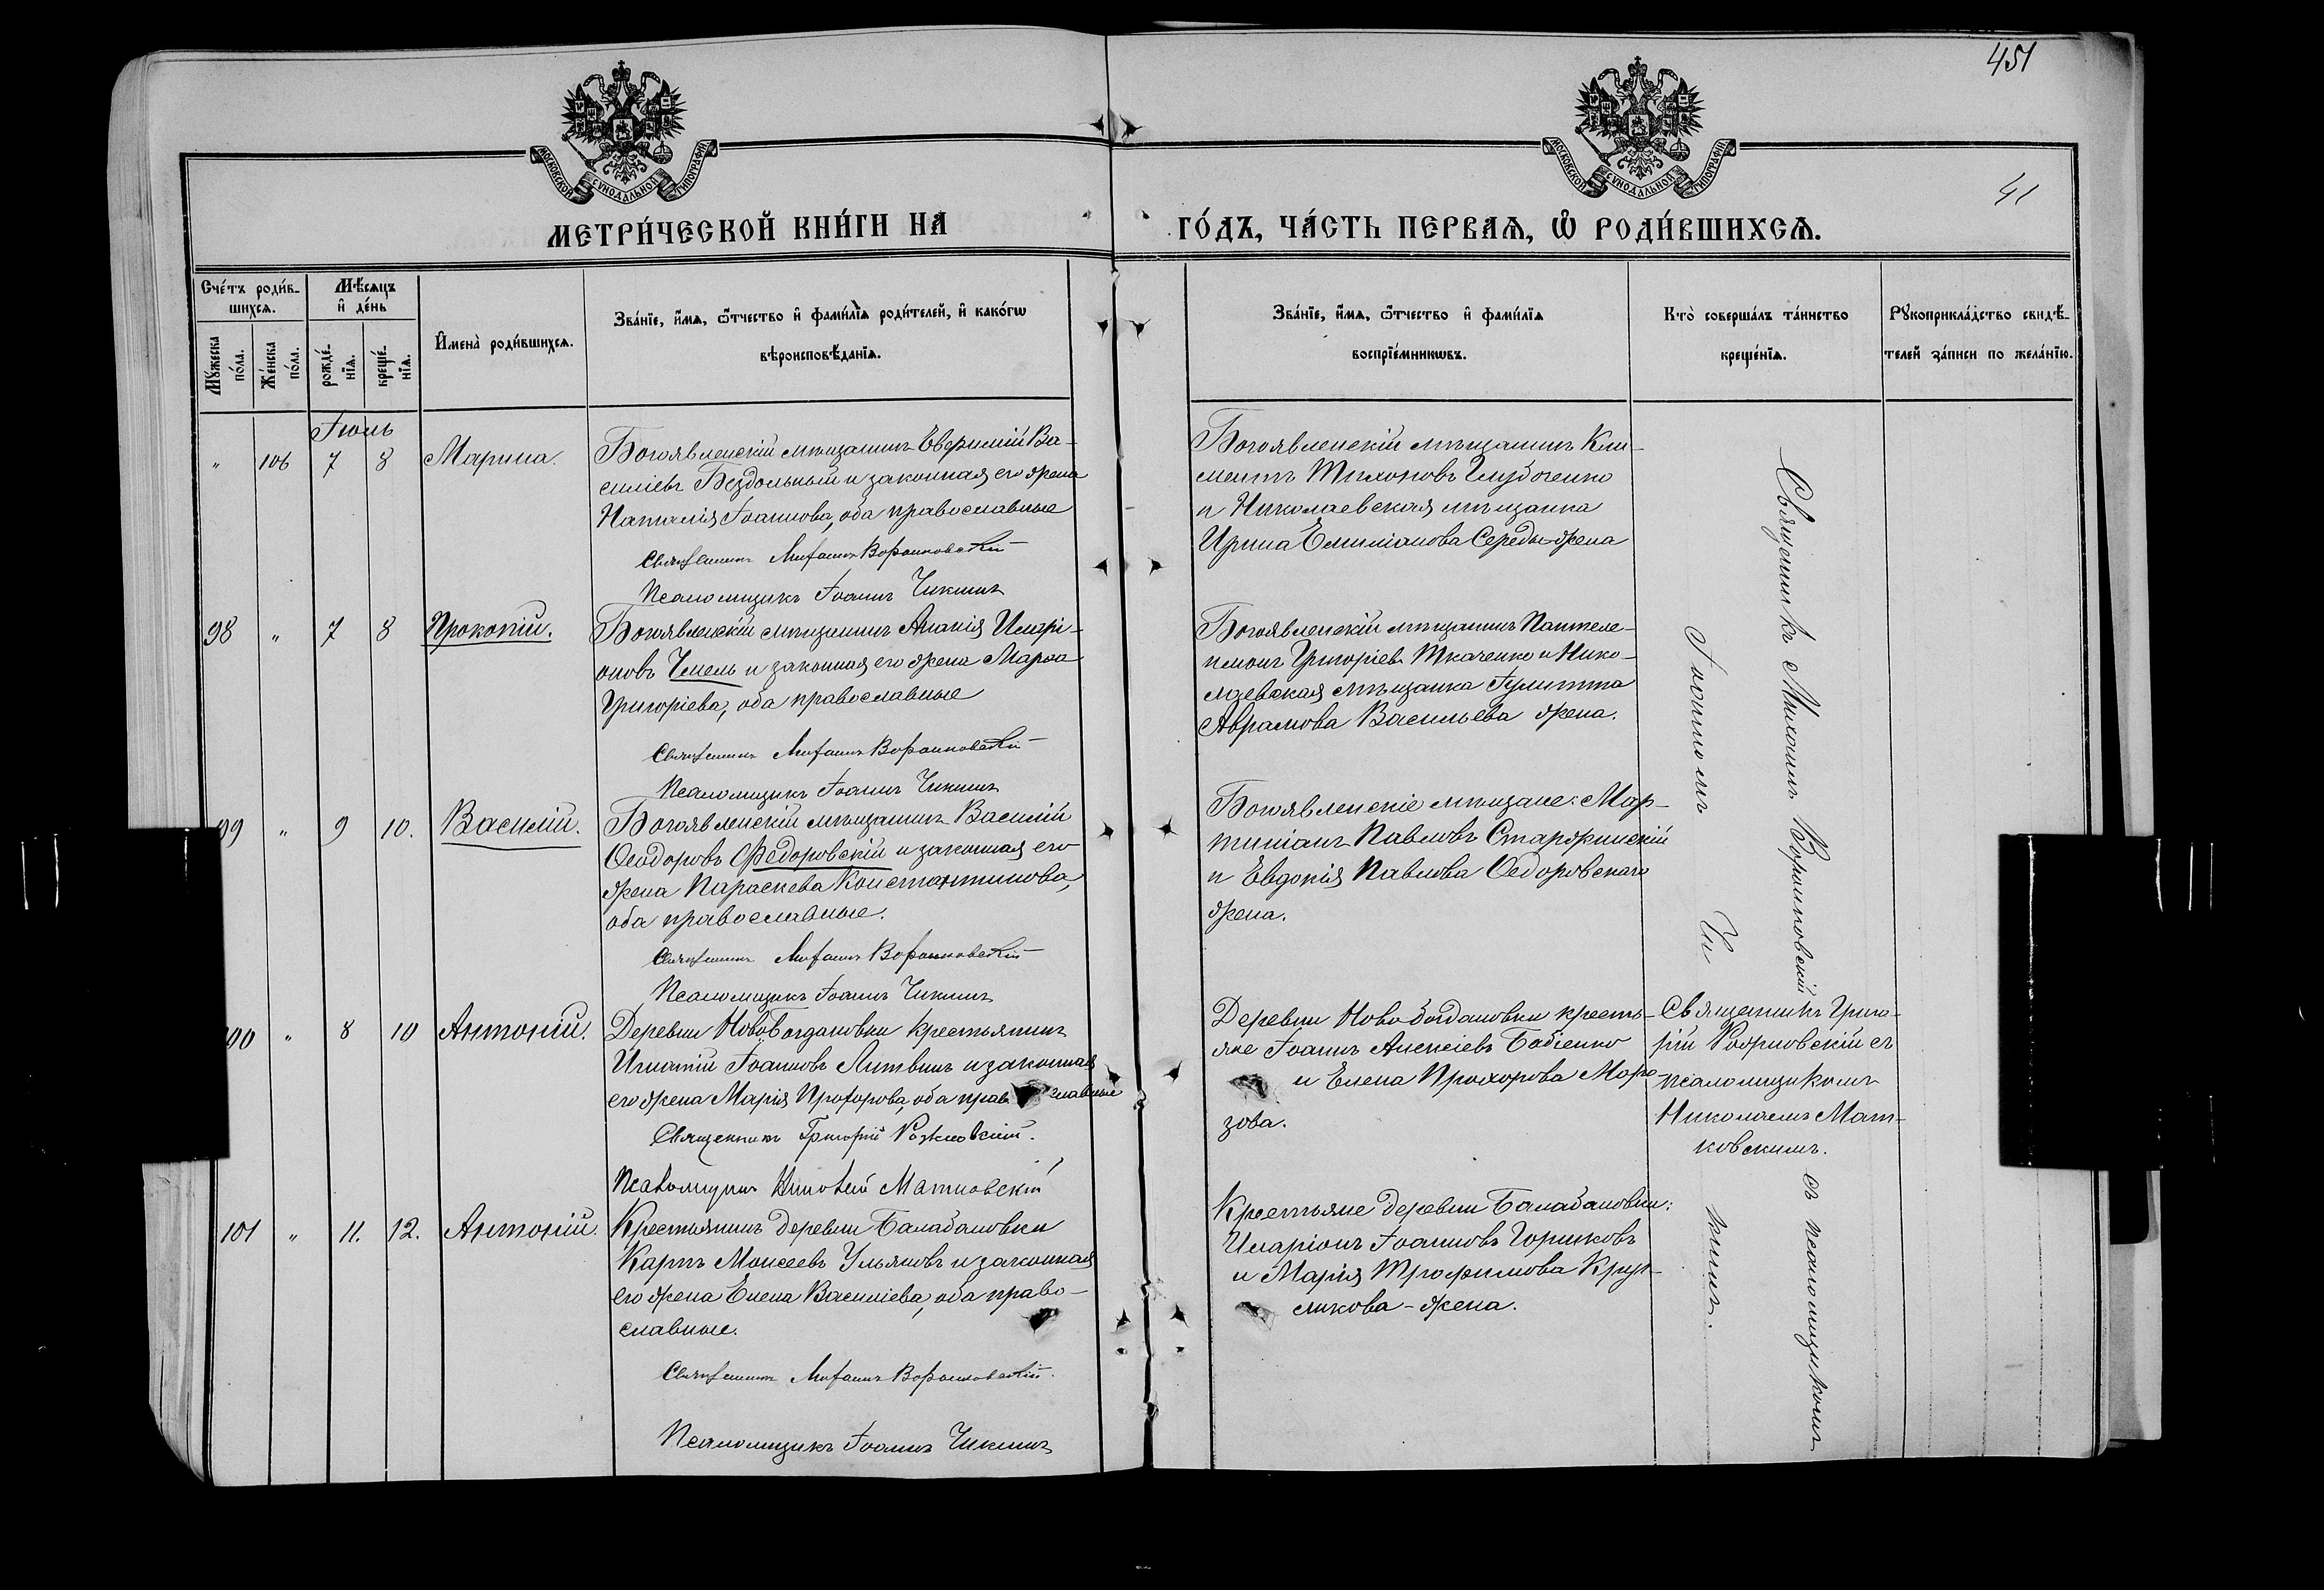 451
41
МОСКОВСКОЙ СѴНОДАЛЬНОЙ ТИПОГРАФІИ
МОСКОВСКОЙ СѴНОДАЛЬНОЙ ТИПОГРАФІИ
МЕТРИ́ЧЕСКОЙ КНИ́ГИ НА
ГО́ДЪ, ЧА́СТЬ ПЕРВАѦ, Ѡ҆ РОДИ́ВШИХСѦ.
Сче́тъ роди́в-
шихсѧ.
Мѣ́сѧцъ
и҆ де́нь
Мꙋ́жеска
по́ла.
Же́нска
по́ла.
рожде́-
нїѧ.
креще́-
нїѧ.
И҆мена̀ роди́вшихсѧ.
Зва́нїе, и҆́мѧ, ѻ҆́тчество и҆ фами́лїѧ роди́телей, и҆ како́гѡ
вѣроисповѣ́данїѧ.
Зва́нїе, и҆́мѧ, ѻ҆́тчество и҆ фами́лїѧ
воспрїе́мникѡвъ.
Кто̀ соверша́лъ та́инство
креще́нїѧ.
Рꙋкоприкла́дство свидѣ́-
телей за́писи по жела́нїю.
Іюль
" 106 7 8 Марина.
Богоявленскій мѣщанинъ Евѳимій Ва-
силіевъ Бездольный и законная его жена
Наталія Іоаннова, оба православные
Священникъ Митрофанъ Воронковскій
Псаломщикъ Іоаннъ Чикинъ
Богоявленскій мѣщанинъ Кли-
ментъ Тихоновъ Глубоченко
и Николаевская мѣщанка
Ирина Емиліанова Середы-жена
98 " 7 8 Прокопій.
Богоявленскій мѣщанинъ Ананія Иларі-
оновъ Чмель и законная его жена Марѳа
Григоріева, оба православные
Псаломщикъ Іоаннъ Чикинъ
Богоявленскій мѣщанинъ Пантеле-
имонъ Григоріевъ Ткаченко и Нико-
лаевская мѣщанка Іулитта
Аврамова Васильева жена.
99 " 9 10. Василій.
Богоявленскій мѣщанинъ Василій
Ѳеодоровъ Федоровскій и законная его
жена Параскева Константинова,
оба православные.
Псаломщикъ Іоаннъ Чикинъ
Богоявленскіе мѣщане: Мар-
тиніанъ Павловъ Старжинскій
и Евдокія Павлова Ѳедоровскаго
жена.
100 " 8 10 Антоній.
Деревни НовоБогдановки крестьянинъ
Игнатій Іоанновъ Литвинъ и законная
его жена Марія Прохорова, оба прав славные
Священникъ Григорій Рожновскій.
Псаломщикъ Николай Матковскій
Деревни Новобогдановки кресть-
яне Іоаннъ Алексіевъ Бабіенко
и Елена Прохорова Моро-
зова.
Священникъ Григо-
рій Рожновскій съ
псаломщикомъ
Николаемъ Мат-
ковскимъ.
101 " 11. 12. Антоній.
Крестьянинъ деревни Балабановки
Карпъ Моисеевъ Ульяновъ и законная
его жена Елена Василіева, оба право-
славные.
Псаломщикъ Іоаннъ Чикинъ
Крестьяне деревни Балабановки:
Иларіонъ Іоанновъ Горшковъ
и Марія Трофимова Круг-
ликова-жена.
Священникъ Воронковскій съ псаломщикомъ
Іоанномъ Чи кинимъ.